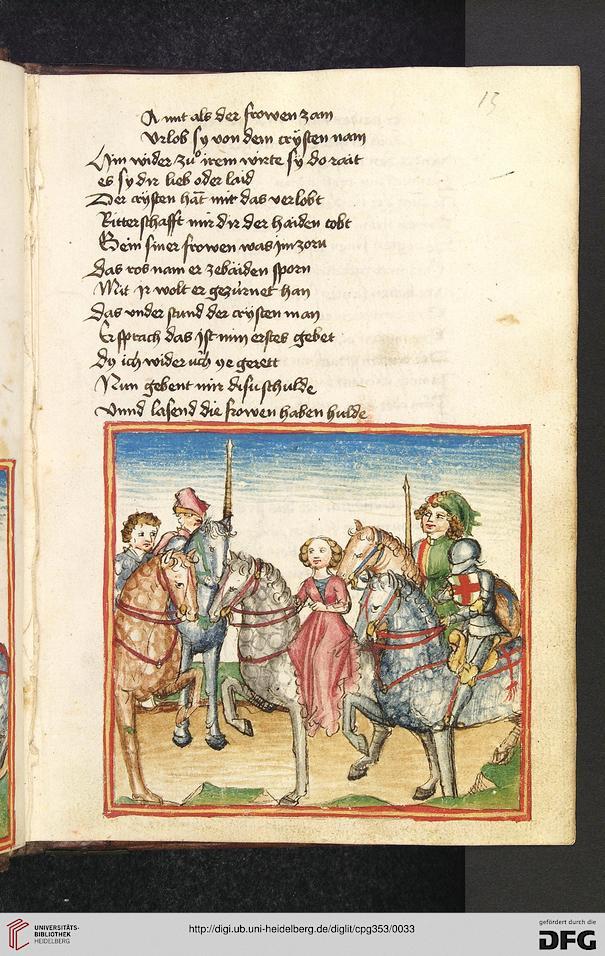 13
A mit als der frowen zam
Vrlob sy von dem crÿsten nam
Hin wider zuͦ irem wirte sy do rait
es sy dir lieb oder laid
Der crÿsten hat mit das verlobt
Ritterschafft mir dir der haiden tobt
Gein siner frowen was jm zorn
das ros nam er ze baiden sporn
Mit Ir wolt er gezürnet han
das vnder stund der crÿsten man
Er sprach das Ist min erstes gebet
Dz ich wider üch ye gerett
Nun gebent mir disu schulde
Vnnd lasend die frowen haben hulde
UNIVERSITÄTS-
BIBLIOTHEK
HEIDELBERG
http://digi.ub.uni-heidelberg.de/diglit/cpg353/0033
gefördert durch die
DFG